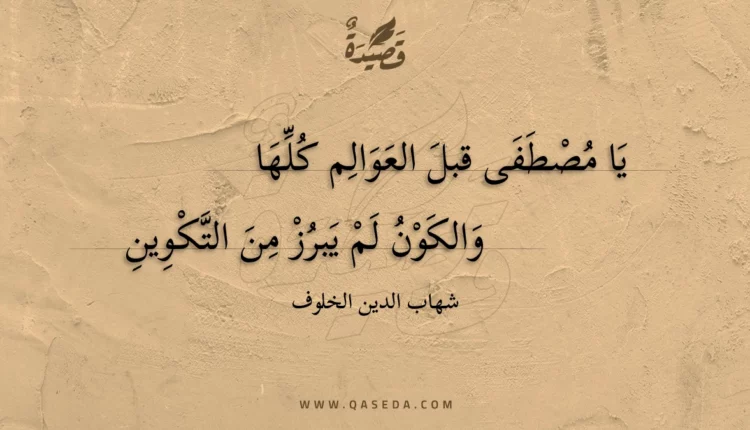 قَصِيْدَةٌ
يَا مُصْطَفَى قبلَ العَوَالِم كُلِّهَا
وَالكَوْنُ لَمْ يَبرُزْ مِنَ التَّكْوِينِ
شهاب الدين الخلوف
WWW.QASEDA.COM